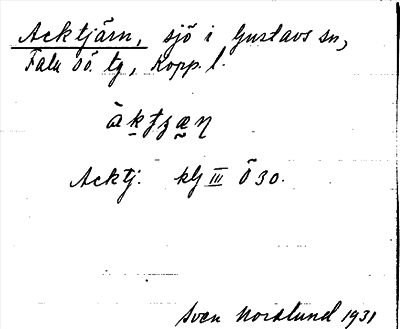 Acktjärn, sjö i Gustavs sn,
Falu sö. tg, Kopp. l.
Acktj. klj III Ö 30.
Sven Nordlund 1931